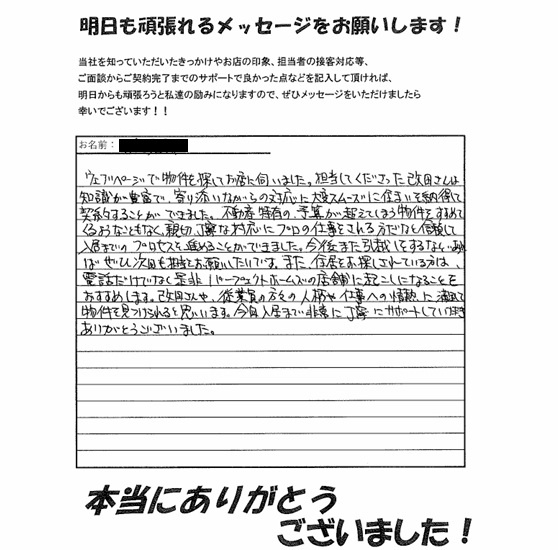 明日も頑張れるメッセージをお願いします！
当社を知っていただいたきっかけやお店の印象、担当者の接客対応等、
ご面談からご契約完了までのサポートで良かった点などを記入して頂ければ、
明日からも頑張ろうと私達の励みになりますので、ぜひメッセージをいただけましたら
幸いでございます！！
お名前：
ウェブページで物件を探してお店に伺いました。担当してくださった改田さんは
知識が豊富で、寄り添いながらの対応に大変スムーズに住まいを納得して
契約することができました。不動産特有の、予算が超えてしまう物件をすすめて
くるなどもなく、親切、丁寧な対応にプロの仕事をされる方だなと信頼して
入居までのプロセスを進めることができました。今後また引越しをするなら、あれ
ばぜひ次回も担当お願いしたいです。また、住居をお探しされている方は、
電話だけでなく是非パーフェクトホームズの店舗に起こしになることを
おすすめします。改田さんや、従業員の方々の人柄や仕事への情熱に満足して
物件を見つけられると思います。今回入居まで非常に丁寧にサポートしていただき
ありがとうございました。
本当にありがとう
ございました！